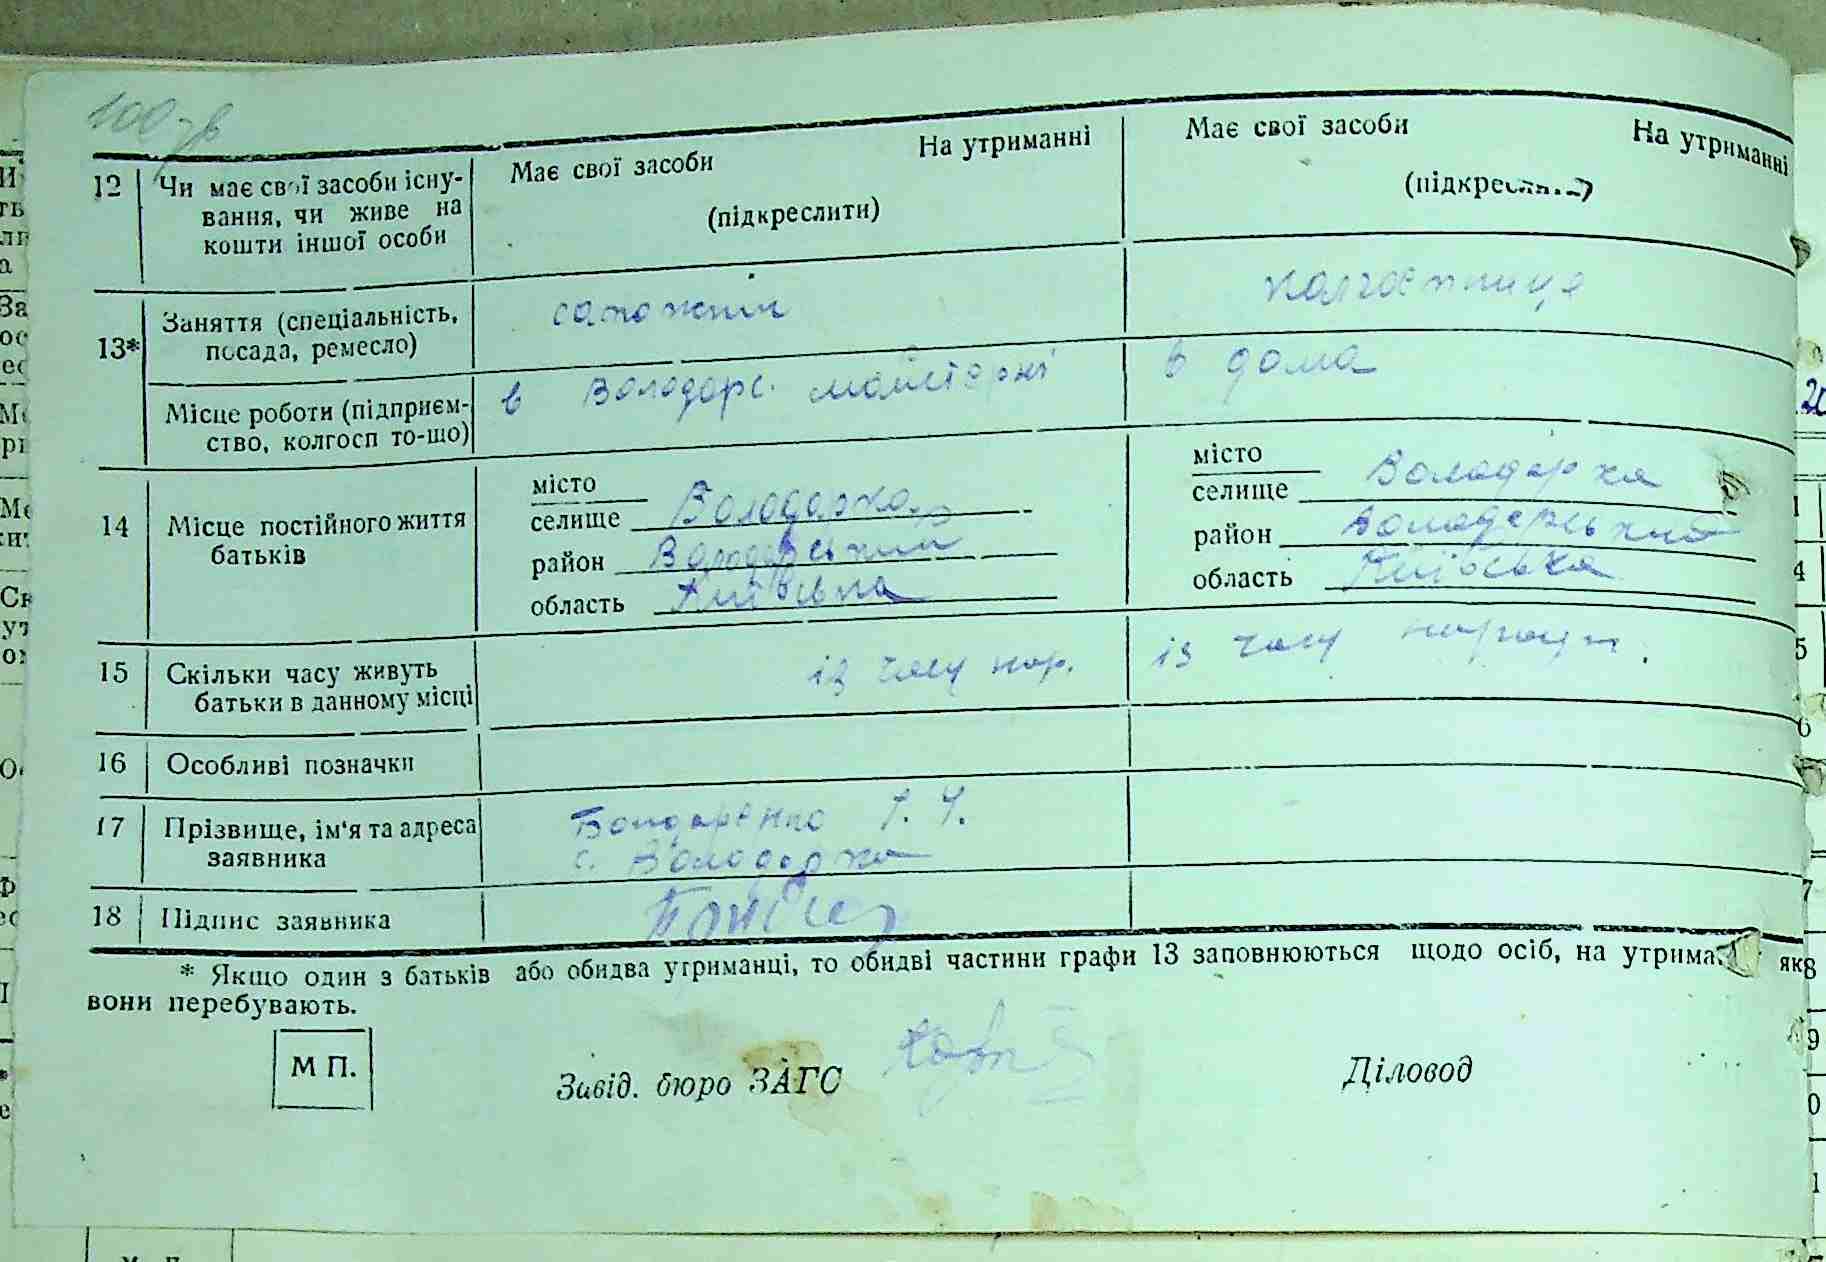 100 зв
12 Чи має свої засоби існу-
вання, чи живе на
кошти іншої особи
Має свої засоби На утриманні
(підкреслити)
Має свої засоби На утриманні
(підкреслити)
13* Заняття (спеціальність,
посада, ремесло)
сапожник
колгоспниця
Місце роботи (підприєм-
ство, колгосп то-що)
в Володарс. майстерні
в дома
14 Місце постійного життя
батьків
місто
селище Володарка
район Володарський
область Київська
місто
селище Володарка
район Володарський
область Київська
15 Скільки часу живуть
батьки в данному місці
із часу нар.
із часу народж.
16 Особливі позначки
17 Прізвище, ім'я та адреса
заявника
Бондаренко
с. Володарка
18 Підпис заявника
* Якщо один з батьків або обидва утриманці, то обидві частини графи 13 заповнюються щодо осіб, на утрима як
вони перебувають.
М П.
Завід. бюро ЗАГС
Діловод